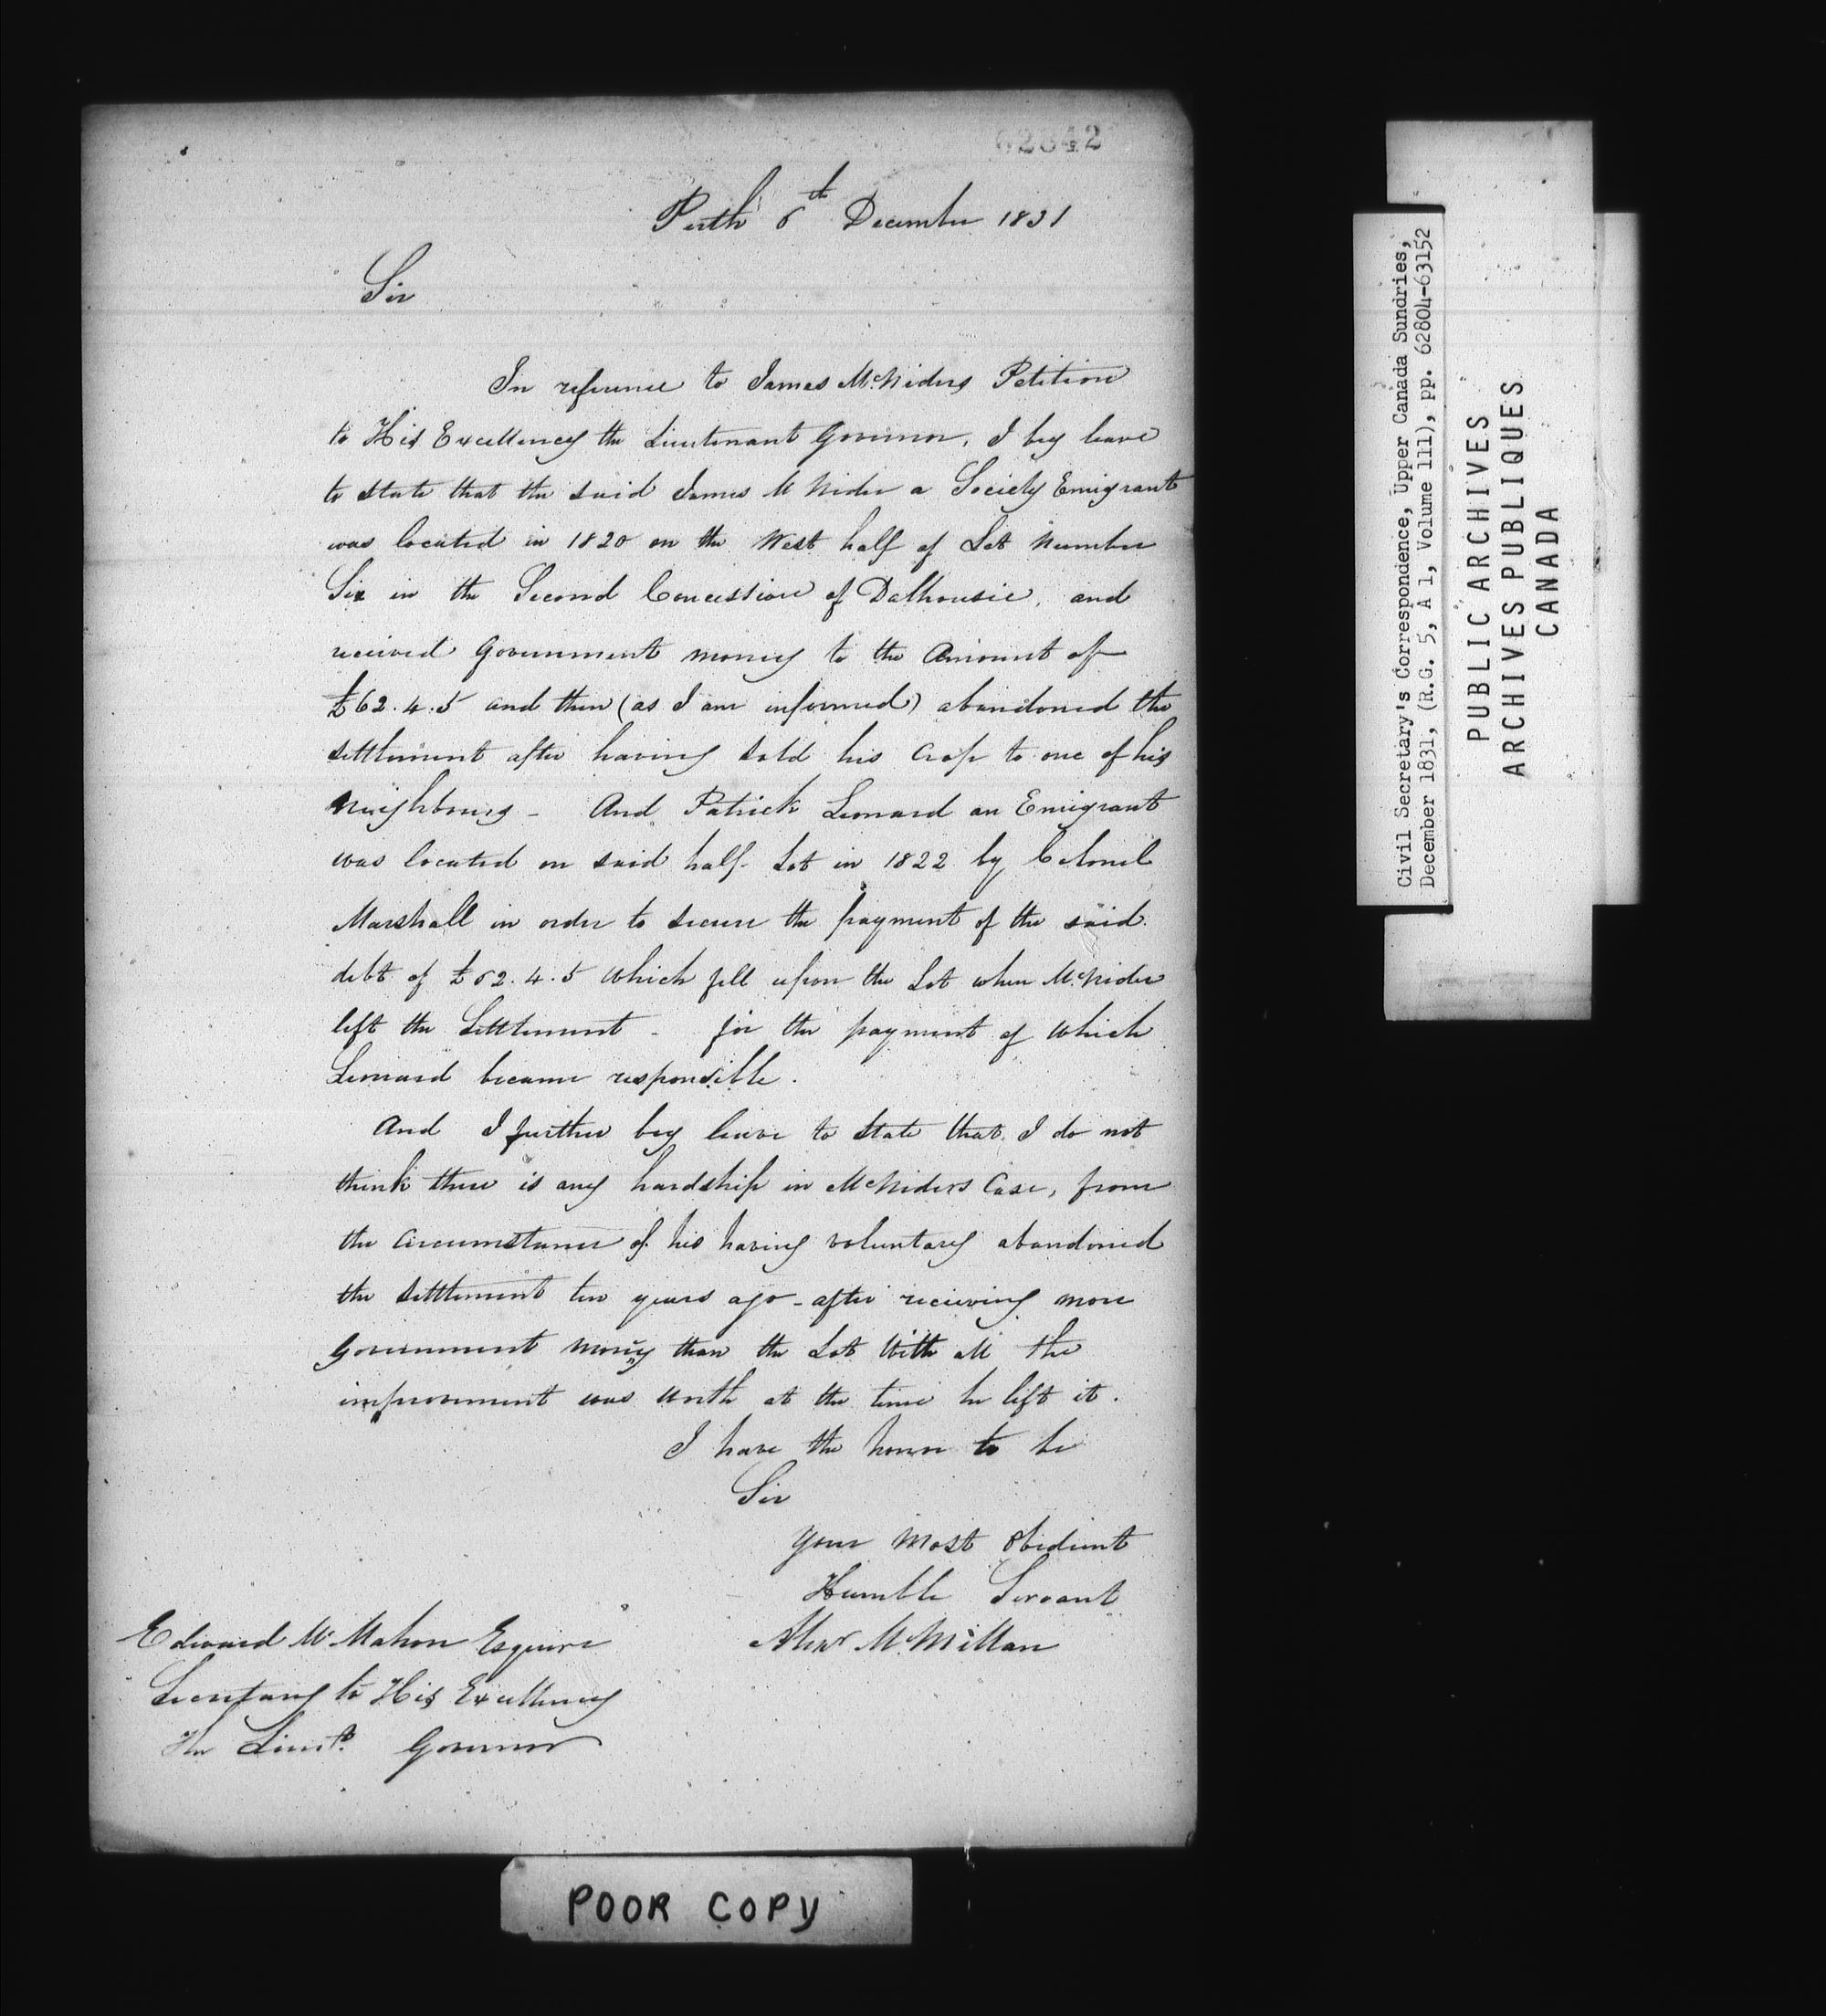 62842
Perth 6th December 1831
Sir
In reference to James McNiders Petition
to His Excellency the Lieutenant Governor, I beg leave
to state that the said James McNider a Society Emigrant
was located in 1820 on the West half of Lot Number
Six in the Second Concession of Dalhousie, and
received Government money to the Amount of
£62.4.5 and then (as I am informed) abandoned the
settlement after having sold his Crop to one of his
Neighbours - And Patrick Leonard an Emigrant
was located on said half Lot in 1822 by Colonel
Marshall in order to secure the payment of the said
debt of £62.4.5 which fell upon the Lot when McNider
left the Settlement - for the payment of which
Leonard became responsible.
And I further beg leave to state that I do not
think there is any hardship in McNiders Case, from
the Circumstance of his having voluntary abandoned
the settlement ten years ago - after recieving more
Government money than the Lot With all the
improvement was worth at the time he left it.
I have the honor to be
Sir
Your Most Obedient
Humble Servant
Alexr McMillan
Edward McMahon Esquire
Secretary to His Excellency
The Lieut. Governor
POOR COPY
Civil Secretary's Correspondence, Upper Canada Sundries,
December 1831, (R.G. 5, A 1, Volume 111), pp. 62804-63152
PUBLIC ARCHIVES
ARCHIVES PUBLIQUES
CANADA